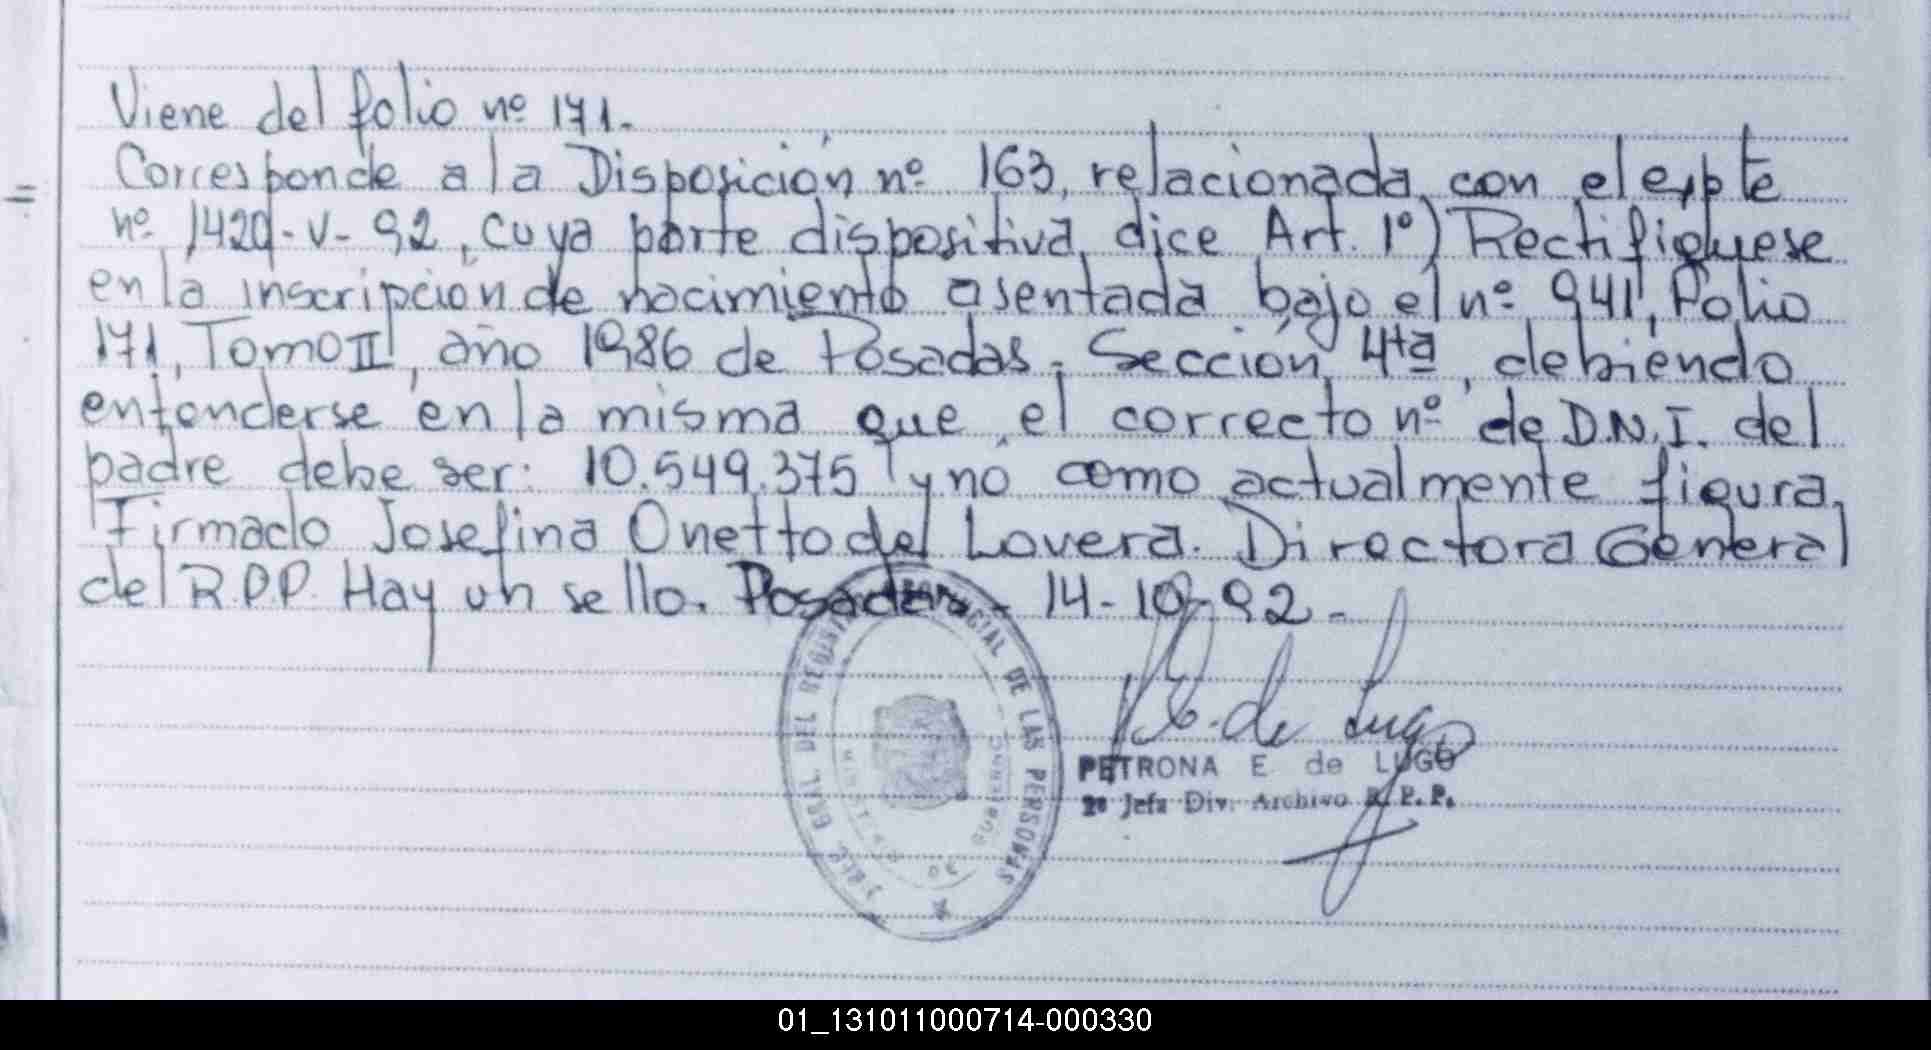 Viene del folio nº 171.
Corresponde a la Disposición nº 163, relacionada con el expte
nº 1420-V-92, cuya parte dispositiva dice Art. 1º) Rectifiquese
en la inscripción de nacimiento asentada bajo el nº 941, Folio
171, Tomo II, año 1986 de Posadas, Sección 4ta, debiendo
entenderse en la misma que el correcto nº de D.N.I. del
padre debe ser: 10.549.375 y no como actualmente figura.
Firmado Josefina Onetto del Lovera. Directora General
del R.P.P. Hay un sello. Posadas - 14-10-92-
GRAL DEL REGISTRO PROVINCIAL DE LAS PERSONAS
MINISTERIO DE GOBIERNO
P.E. de Lugo
PETRONA E de LUGO
2ª Jefa Div. Archivo R. P. P.
01_131011000714-000330